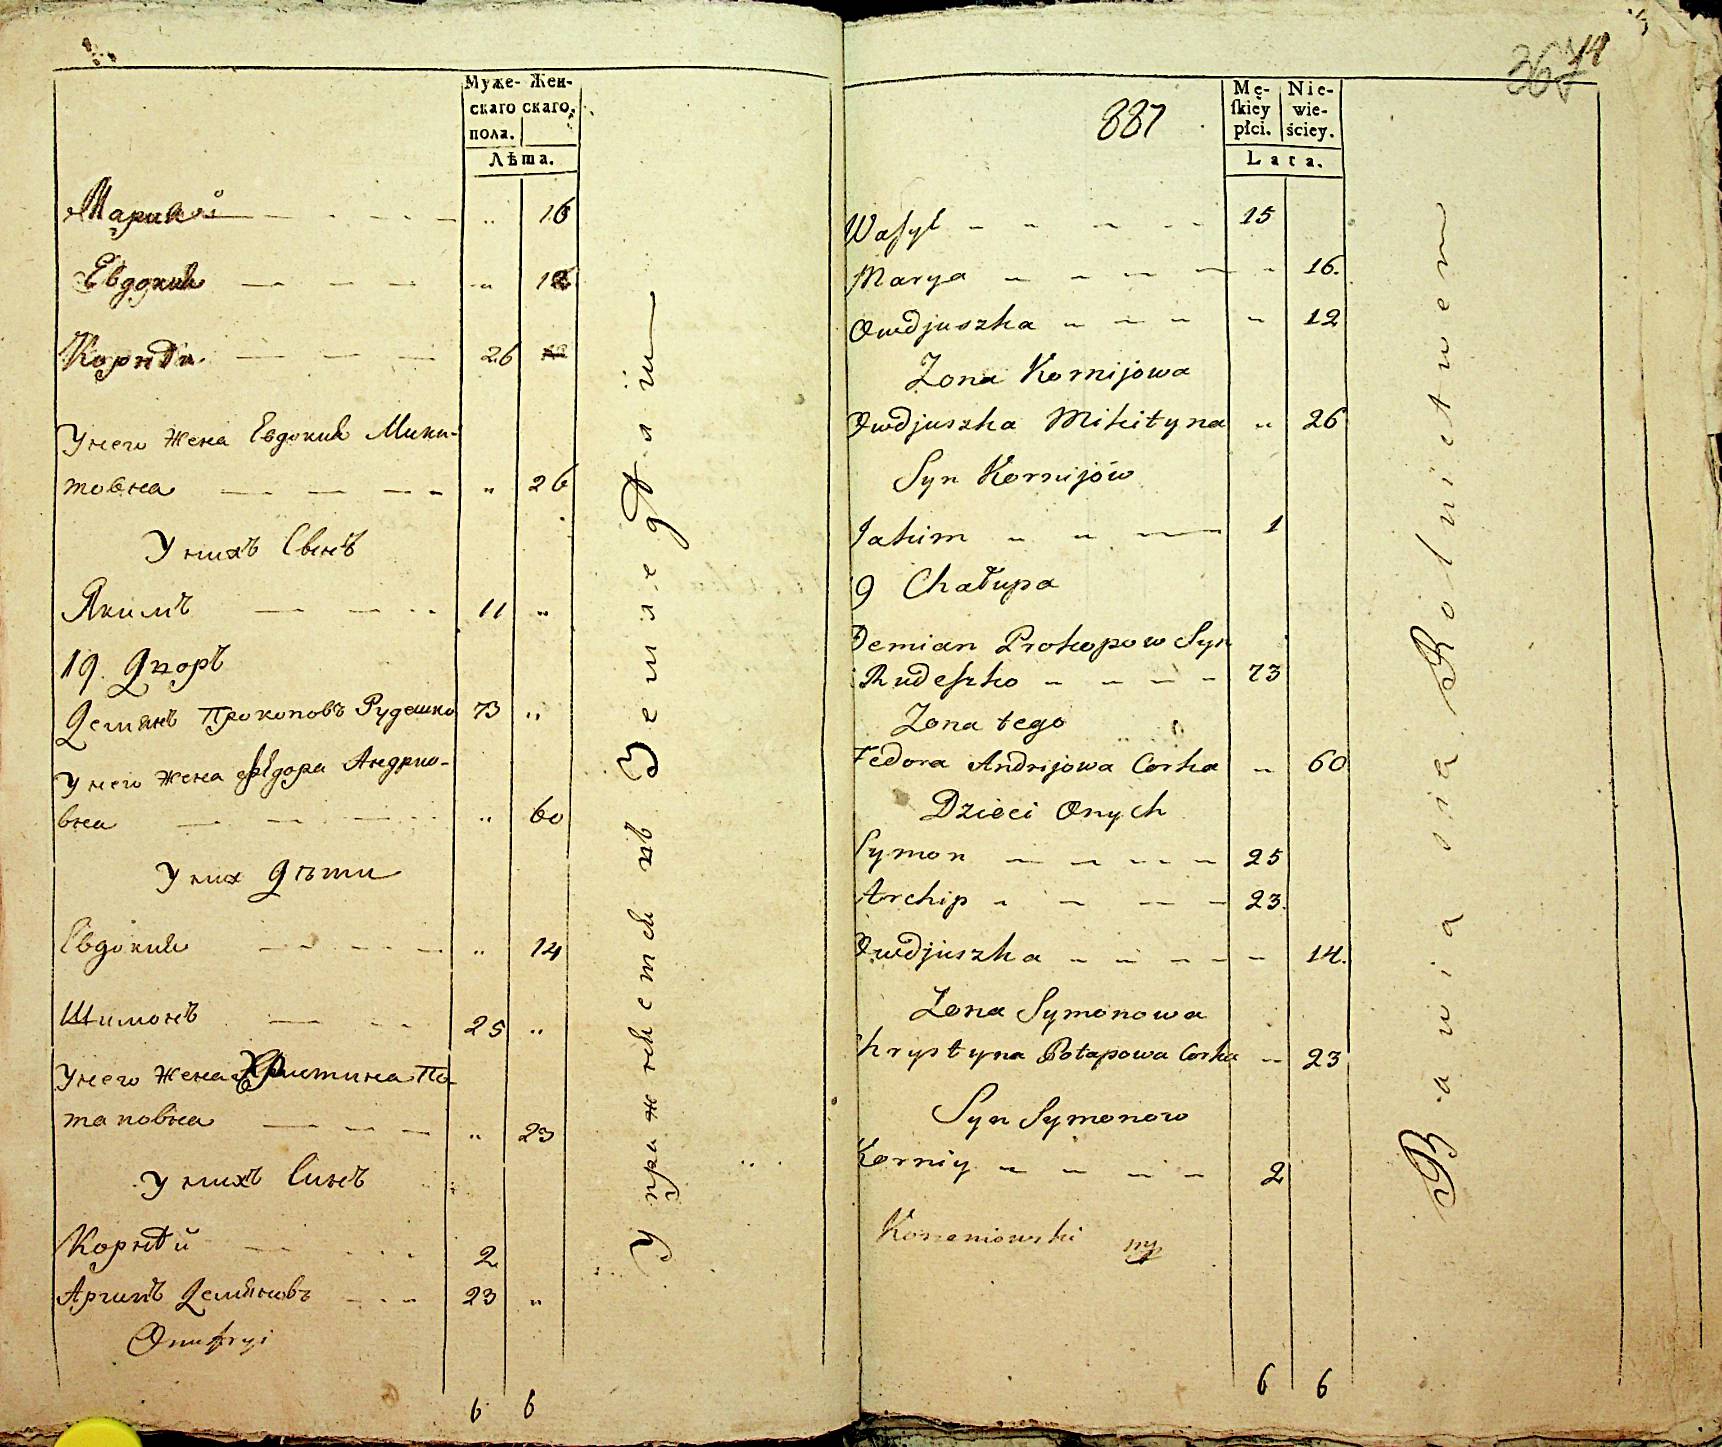 Муже- Жен-
скаго скаго,
пола.
Лѣта.
Мария 16
Евдокия 12
Корнѣи 26
У него жена Евдокия Мики-
товна 26
У нихъ Сынъ
Якимъ 11
19. Дворъ
Демянъ Прокоповъ Рудешко 73
У него жена Федора Андрио-
вна 60
У них дѣти
Евдокия 14
Шимонъ 25
У него жена Христина По-
таповна 23
У нихъ Синъ
Корнѣй 2
Архипъ Демяновъ 23
Onufryi
6 6
Упражняется въ Земледѣлїи
367
887
Mę- Nie-
skiey wie-
płci. ściey.
Lata.
Wasyl 15
Marya 16.
Owdjuszka 12
Zona Kornijowa
Owdjuszka Mikityna 26
Syn Kornijów
Jakim 1
9 Chałupa
Demian Prokopow Syn
Rudeszko 73
Zona tego
Fedora Andrijowa Corka 60
Dzieci Onych
Symon 25
Archip 23.
Owdjuszka 14.
Zona Symonowa
Chrystyna Potapowa Corka 23
Syn Symonow
Korniy 2
Korzeniowski mp
6 6
Bawia sia Rolnictwem